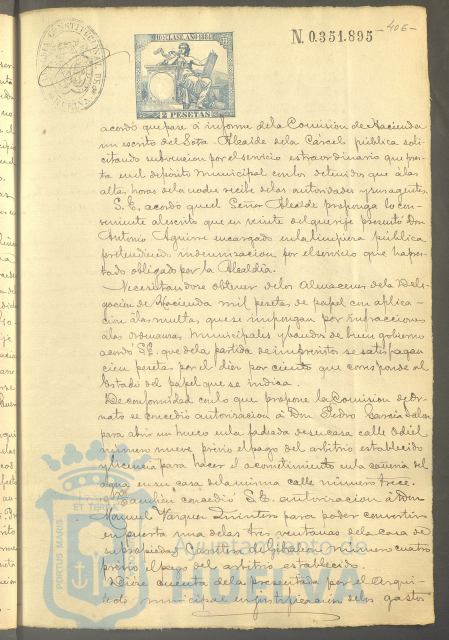 406
N. 0.351.895
10ª CLASE. AÑO 1881
2 PESETAS
acordó que pase á informe de la Comision de Hacienda
un escrito del Sota Alcaide de la Cárcel pública soli-
citando subvencion por el servicio estraordinario que pres-
ta en el depósito municipal con los detenidos que á las
altas horas de la noche recibe de las autoridades y sus agentes.
S. E. acordó que el Señor Alcalde proponga lo con-
veniente al escrito que en veinte del que rije presentó Don
Antonio Aguirre encargado en la limpieza pública
pretendiendo indemnizacion por el servicio que ha pres-
tado obligado por la Alcaldia.
Necesitandose obtener de los Almacenes de la Dele-
gacion de Hacienda mil pesetas de papel con aplica-
cion á las multas que se impongan por infracciones
a las ordenanzas municipales y bandos de buen gobierno
acordó S. E. que de la partida de imprevistos se satisfagan
cien pesetas por el diez por ciento que corresponde al
Estado del papel que se indica.
De conformidad con lo que propone la Comision de Or-
nato se concedió autorizacion á Don Pedro Garcia
para abrir un hueco en la fachada de su casa calle Odiel
número nueve prévio el pago del arbitrio establecido
y licencia para hacer el acometimiento en la cañeria del
agua en su casa de la misma calle número trece.
Tambien concedió S. E. autorizacion á Don
Manuel Vazquez Quintero para poder convertir
en puerta una de las tres ventanas de la casa de
su propiedad Carretera de Gibraleon número cuatro
prévio el pago del arbitrio establecido.
Dióse cuenta de la presentada por el Arqui-
tecto municipal en justificacion de los gastos
PORTUS MARIS
ET TERRÆ
Ayuntamiento de
HUELVA